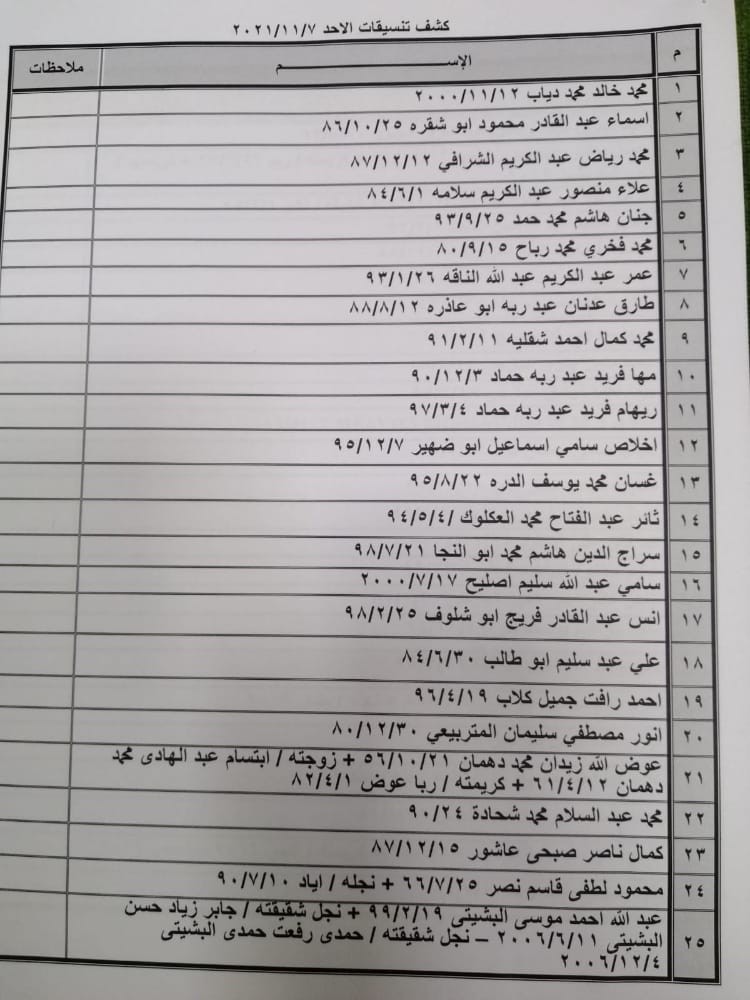 كشف تنسيقات الاحد ٢٠٢١/١١/٧
م الإســـــــــــــم ملاحظات
١ محمد خالد محمد دياب ٢٠٠٠/١١/١٢
٢ اسماء عبد القادر محمود ابو شقره ٨٦/١٠/٢٥
٣ محمد رياض عبد الكريم الشرافي ٨٧/١٢/١٢
٤ علاء منصور عبد الكريم سلامه ٨٤/٦/١
٥ جنان هاشم محمد حمد ٩٣/٩/٢٥
٦ محمد فخري محمد رباح ٨٠/٩/١٥
٧ عمر عبد الكريم عبد الله الناقه ٩٣/١/٢٦
٨ طارق عدنان عبد ربه ابو عاذره ٨٨/٨/١٢
٩ محمد كمال احمد شقليه ٩١/٢/١١
١٠ مها فريد عبد ربه حماد ٩٠/١٢/٣
١١ ريهام فريد عبد ربه حماد ٩٧/٣/٤
١٢ اخلاص سامي اسماعيل ابو ضهير ٩٥/١٢/٧
١٣ غسان محمد يوسف الدره ٩٥/٨/٢٢
١٤ ثائر عبد الفتاح محمد العكلوك /٩٤/٥/٤
١٥ سراج الدين هاشم محمد ابو النجا ٩٨/٧/٢١
١٦ سامي عبد الله سليم اصليح ٢٠٠٠/٧/١٧
١٧ انس عبد القادر فريج ابو شلوف ٩٨/٢/٢٥
١٨ علي عبد سليم ابو طالب ٨٤/٦/٣٠
١٩ احمد رافت جميل كلاب ٩٦/٤/١٩
٢٠ انور مصطفي سليمان المتربيعي ٨٠/١٢/٣٠
٢١ عوض الله زيدان محمد دهمان ٥٦/١٠/٢١ + زوجته / ابتسام عبد الهادى محمد
دهمان ٦١/٤/١٢ + كريمته / ربا عوض ٨٢/٤/١
٢٢ محمد عبد السلام محمد شحادة ٩٠/٢٤
٢٣ كمال ناصر صبحى عاشور ٨٧/١٢/١٥
٢٤ محمود لطفى قاسم نصر ٦٦/٧/٢٥ + نجله / اياد ٩٠/٧/١٠
٢٥ عبد الله احمد موسى البشيتى ٩٩/٢/١٩ + نجل شقيقته / جابر زياد حسن
البشيتي ٢٠٠٦/٦/١١ – نجل شقيقته / حمدى رفعت حمدى البشيتى
٢٠٠٦/١٢/٤